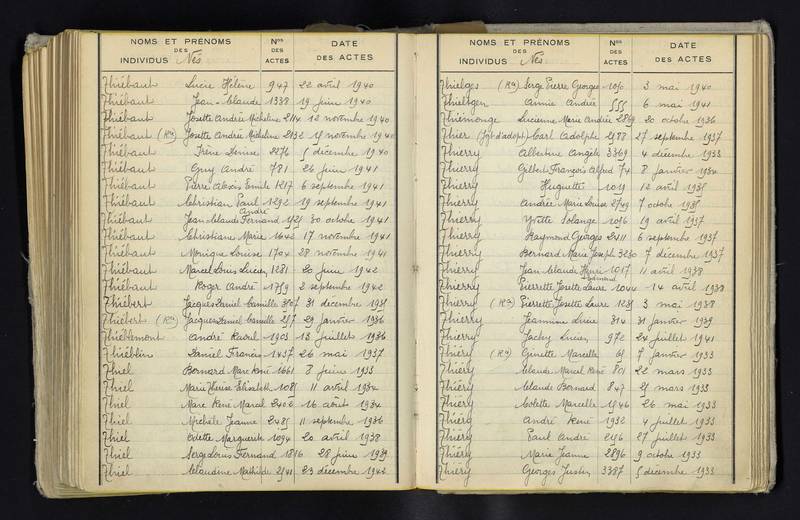 NOMS ET PRÉNOMS
DES
INDIVIDUS Nés
Nos
DES
ACTES
DATE
DES ACTES
Thiébaut Lucie Hélène 947 22 avril 1940
Thiébaut Jean-Claude 1338 19 juin 1940
Thiébaut Josette Andrée Micheline 2114 12 novembre 1940
Thiébaut (Ra) Josette Andrée Micheline 2132 15 novembre 1940
Thiébaut Irène Denise 2276 5 décembre 1940
Thiébaut Guy André 781 26 juin 1941
Thiébaut Pierre Alexis Emile 1217 6 septembre 1941
Thiébaut Christian Paul 1292 19 septembre 1941
Thiébaut Jean-Claude André Fernand 1525 30 octobre 1941
Thiébaut Christiane Marie 1642 17 novembre 1941
Thiébaut Monique Louise 1704 28 novembre 1941
Thiébaut Marcel Louis Lucien 1281 20 juin 1942
Thiébaut Roger André 1759 2 septembre 1942
Thiébert Jacques Daniel Camille 3107 31 décembre 1935
Thiébert (Ra) Jacques Daniel Camille 257 29 janvier 1936
Thiéblemont André Raoul 1903 13 juillet 1936
Daniel Francis 1437 26 mai 1937
Thiel Bernard Marc René 1661 8 juin 1933
Thiel Marie Thérèse Elisabeth 1085 11 avril 1934
Thiel Marc René Marcel 2402 16 août 1934
Thiel Michèle Jeanne 2485 11 septembre 1936
Thiel Odette Marguerite 1094 20 avril 1938
Thiel Serge Louis Fernand 1816 28 juin 1939
Thiel Claudine Mathilde 2541 23 décembre 1942
NOMS ET PRÉNOMS
DES
INDIVIDUS Nés
Nos
DES
ACTES
DATE
DES ACTES
Thielges (Ra) Serge Pierre Georges 1050 3 mai 1940
Thieltgen Annie Andrée 555 6 mai 1941
Thiémonge Lucienne Marie Andrée 2869 20 octobre 1936
Thier (Jgt d'adopt.) Carl Adolphe 2588 27 septembre 1937
Thierry Albertine Angèle 3369 4 décembre 1933
Thierry Gilbert François Alfred 74 8 janvier 1934
Thierry Huguette 1019 12 avril 1935
Thierry Andrée Marie Louise 2749 7 octobre 1935
Thierry Yvette Solange 1096 19 avril 1937
Thierry Raymond Georges 2411 6 septembre 1937
Thierry Bernard Marie Joseph 3230 7 décembre 1937
Thierry Jean-Claude Henri 1017 11 avril 1938
Thierry Pierrette Josette Laure 1044 14 avril 1938
Thierry (Ra) Pierrette Josette Laure 1235 3 mai 1938
Thierry Jeannine Lucie 314 31 janvier 1939
Thierry Jacky Lucien 972 24 juillet 1941
Thiéry (Ra) Ginette Marcelle 61 7 janvier 1933
Thiéry Claude Marcel René 801 22 mars 1933
Thiéry Claude Bernard 847 25 mars 1933
Thiéry Colette Marcelle 1546 26 mai 1933
Thiéry André René 1932 4 juillet 1933
Thiéry Paul André 2156 27 juillet 1933
Thiéry Marie Jeanne 2896 9 octobre 1933
Thiéry Georges Justin 3387 5 décembre 1933